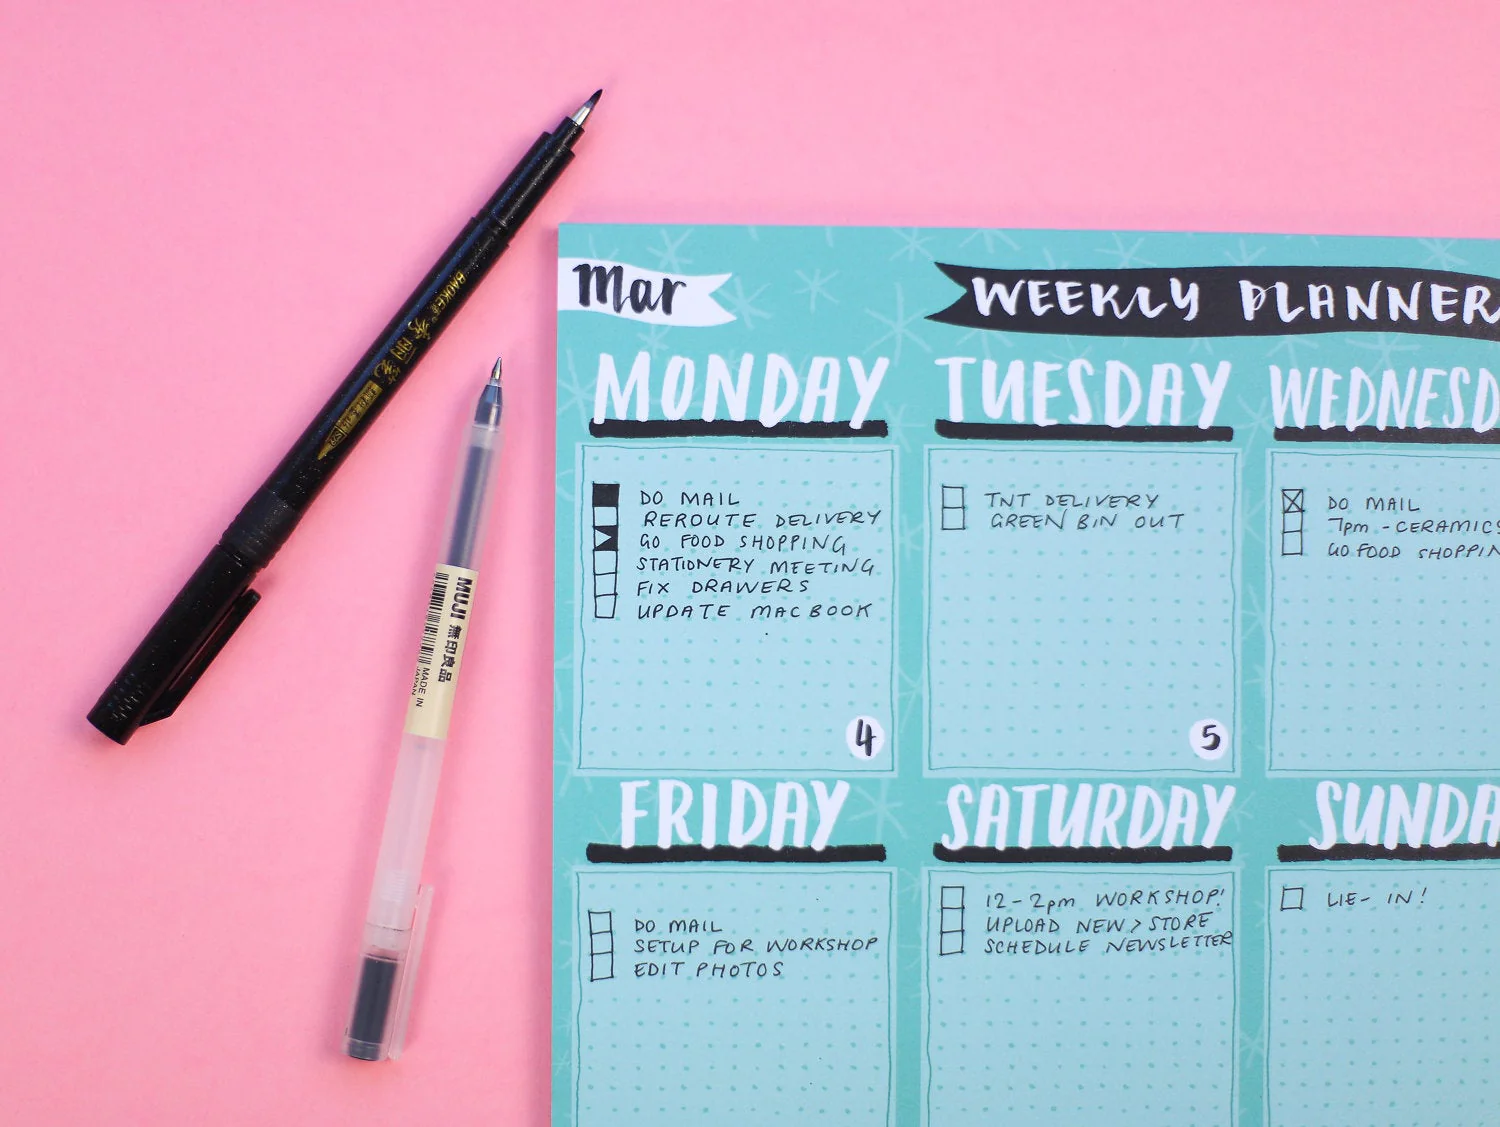 Mar
WEEKLY PLANNER
MONDAY
DO MAIL
REROUTE DELIVERY
GO FOOD SHOPPING
STATIONERY MEETING
FIX DRAWERS
UPDATE MACBOOK
4
TUESDAY
TNT DELIVERY
GREEN BIN OUT
5
WEDNESD
DO MAIL
7pm - CERAMICS
GO FOOD SHOPPIN
FRIDAY
DO MAIL
SETUP FOR WORKSHOP
EDIT PHOTOS
SATURDAY
12-2pm WORKSHOP!
UPLOAD NEW > STORE
SCHEDULE NEWSLETTER
SUNDA
LIE-IN!
MUJI 無印良品
MADE IN
JAPAN